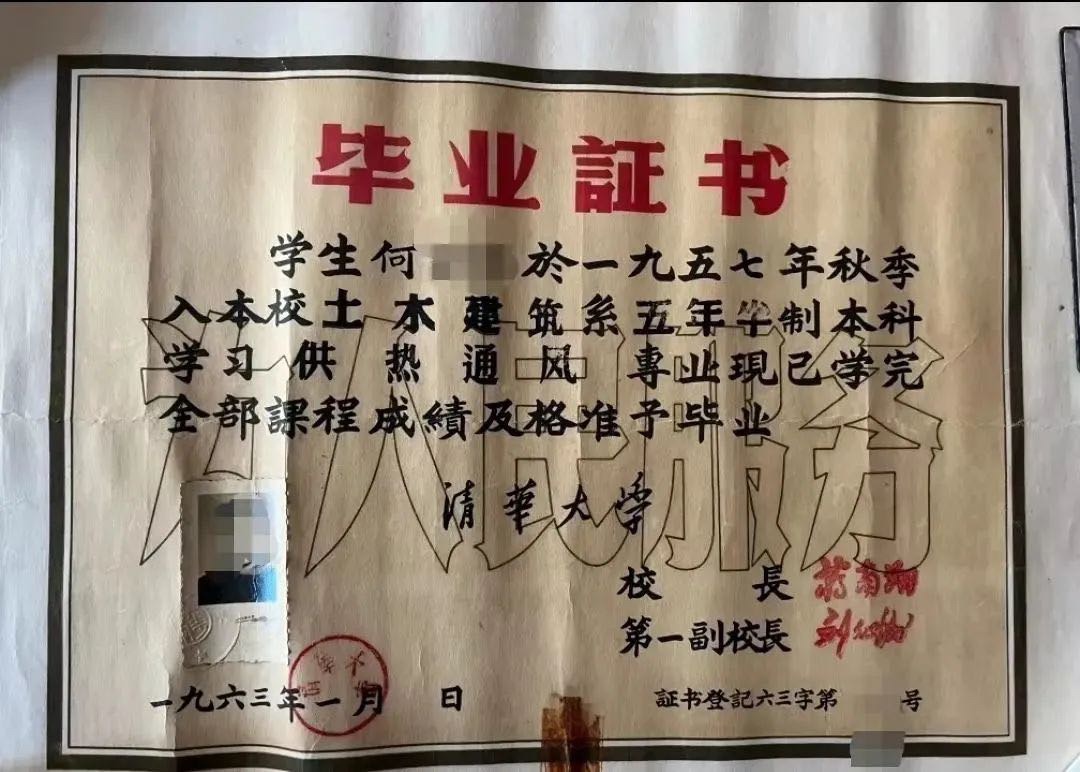 毕业証书
学生何 於一九五七年秋季
入本校土木建筑系五年半制本科
学习供热通风專业現已学完
全部課程成績及格准予毕业
清華大学
校長 蒋南翔
第一副校長 刘仙洲
一九六三年一月 日
証书登記六三字第 号
为人民服务